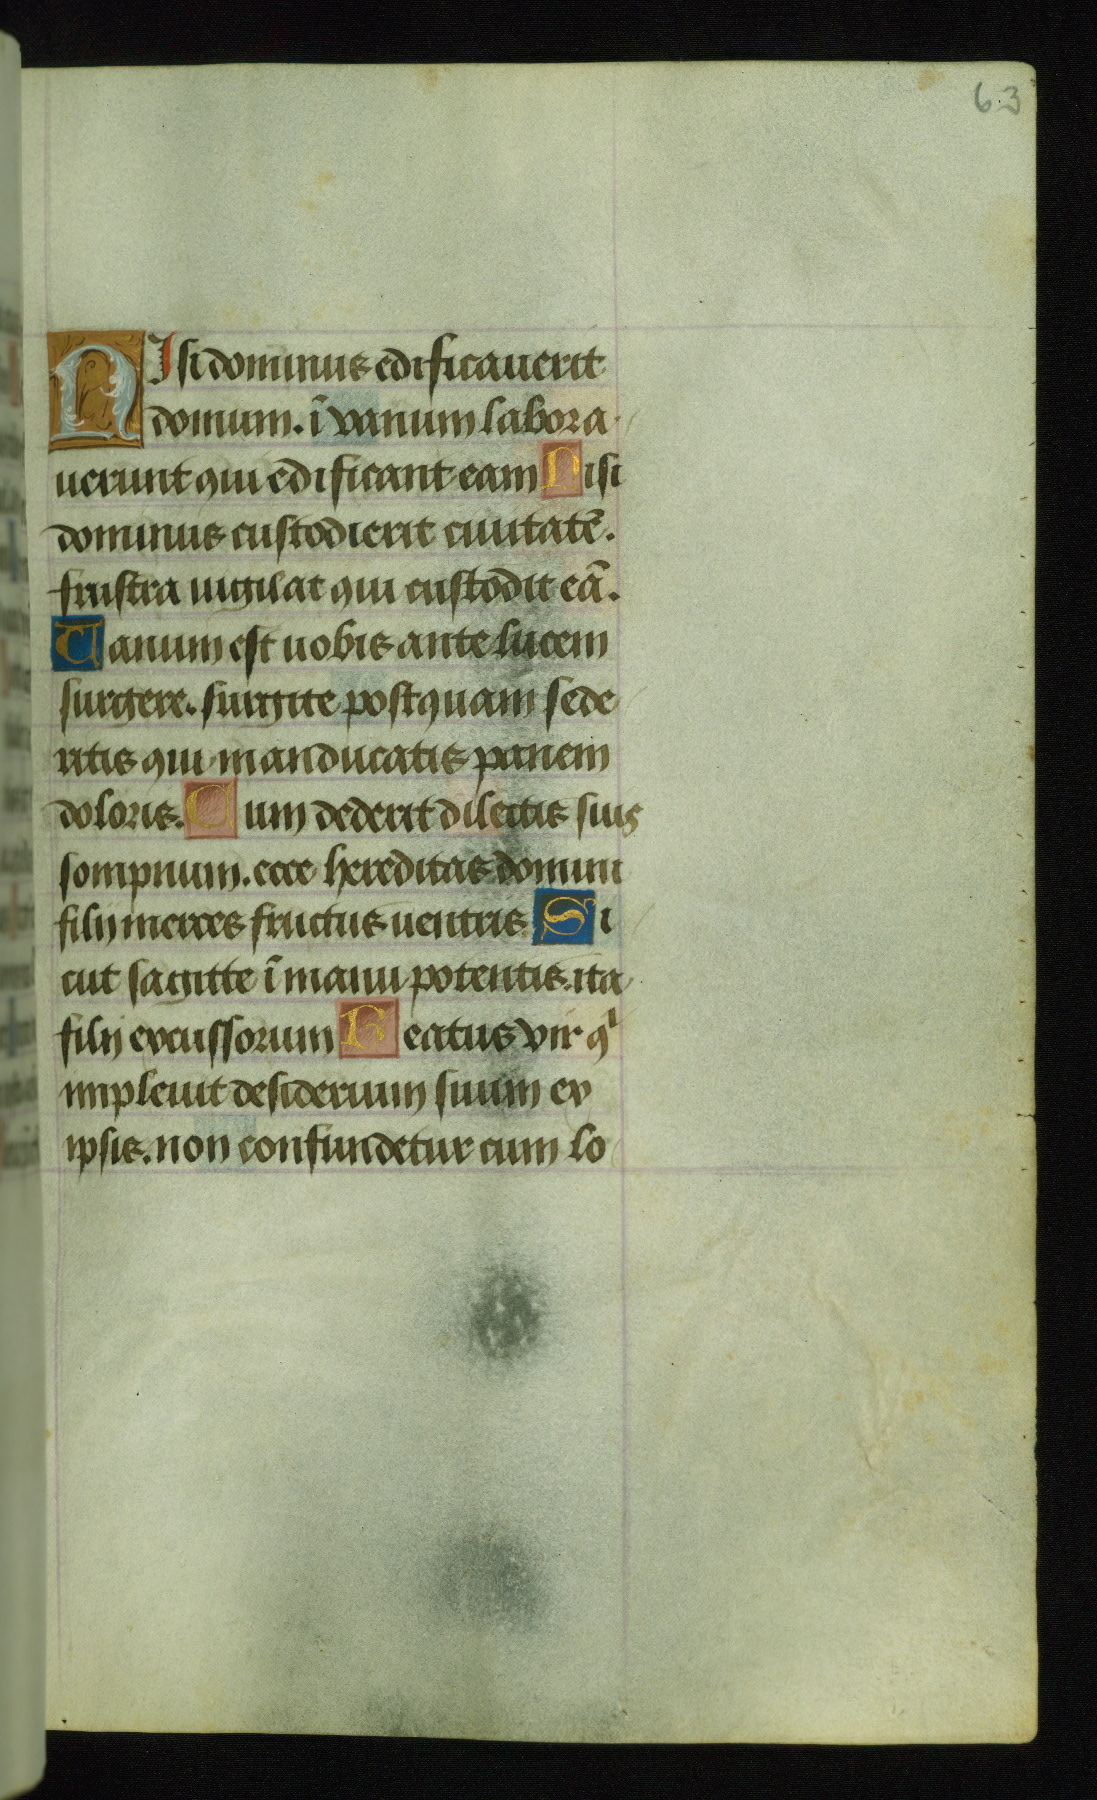 63
NIsi dominus edificauerit
domum. ī vanum labora
uerunt qui edificant eam Nisi
dominus custodierit ciuitatē.
frustra uigilat qui custodit eā.
Vanum est uobis ante lucem
surgere. surgite postquam sede
ritis qui manducatis panem
doloris. Cum dederit dilectis suis
sompnum. ecce hereditas domini
filij merces fructus uentris Si
cut sagitte ī manu potentis. ita
filij excussorum Beatus vir qⁱ
impleuit desiderium suum ex
ipsis. non confundetur cum lo